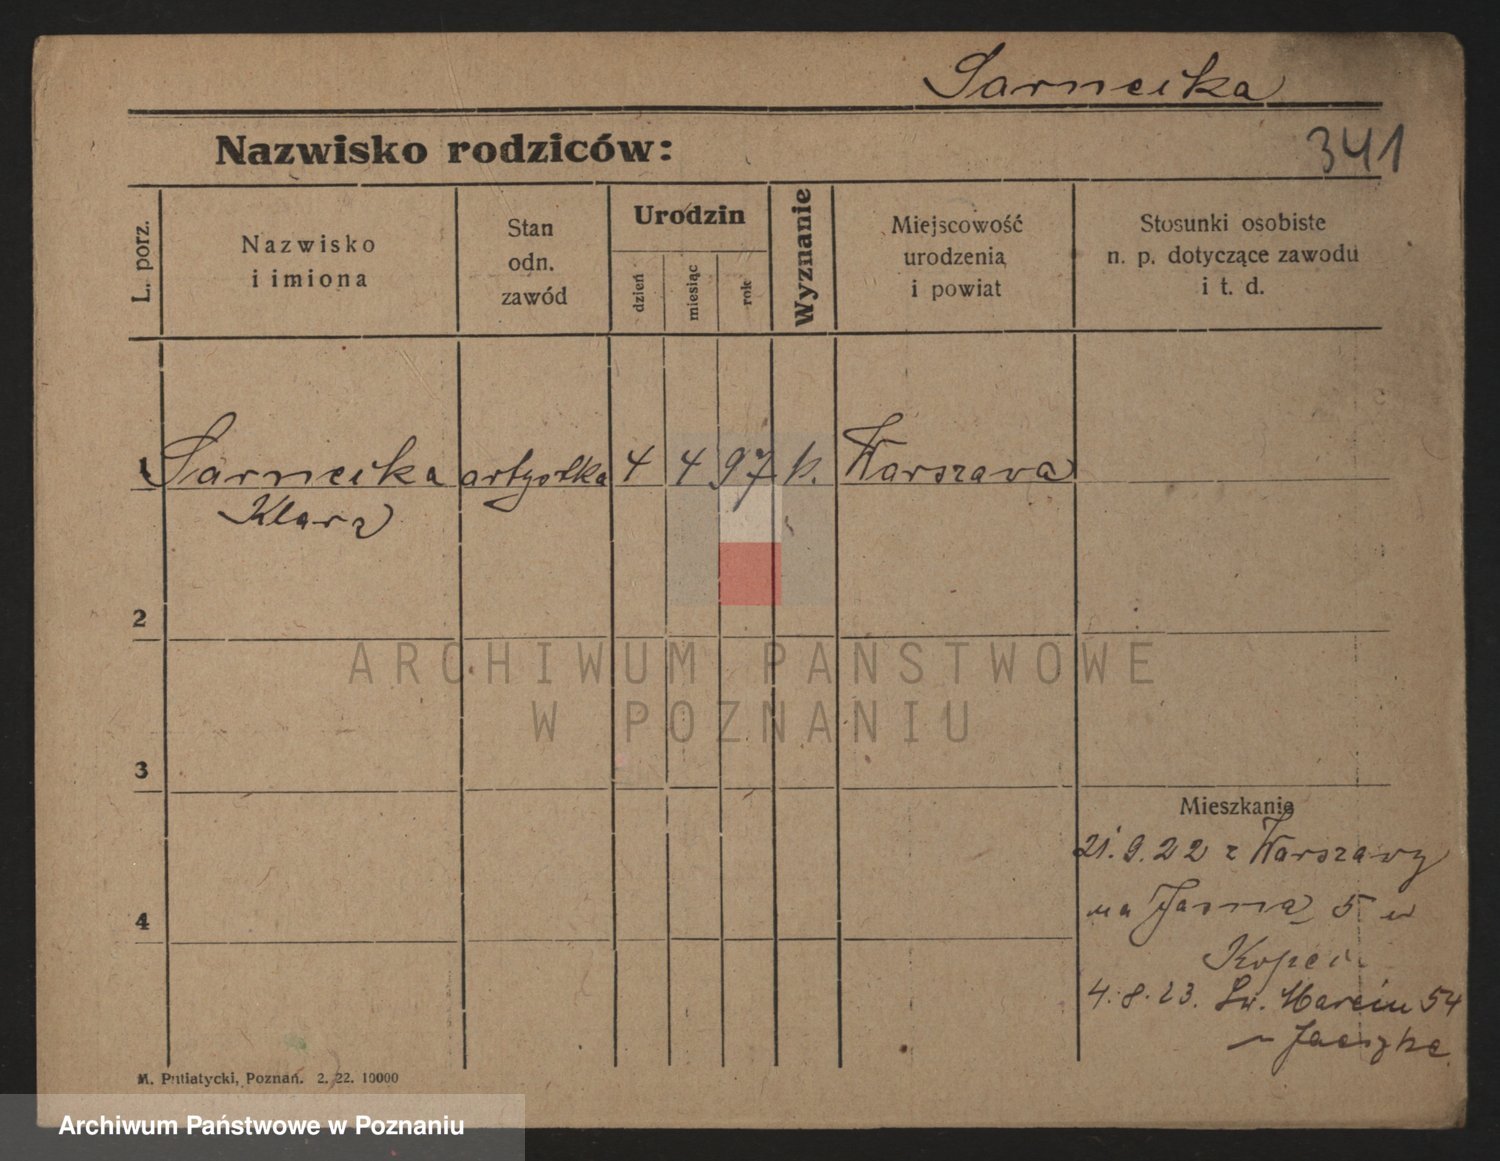 Sarnecka
341
Nazwisko rodziców:
L. porz.
Nazwisko
i imiona
Stan
odn.
zawód
Urodzin
dzień
miesiąc
rok
Wyznanie
Miejscowość
urodzenia
i powiat
Stosunki osobiste
n. p. dotyczące zawodu
i t. d.
1 Sarnecka artystka 4 4 97 k. Warszawa
Klara
2
ARCHIWUM PAŃSTWOWE
W POZNANIU
3
Mieszkanie
21.9.22 z Warszawy
4
na Jasną 5 u
4.8.23. Św. Marcin 54
M. Putiatycki, Poznań. 2. 22. 10000
Archiwum Państwowe w Poznaniu